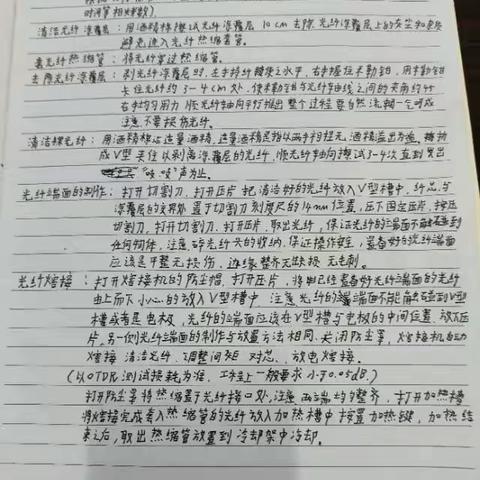 时间等相关参数)
清洁光纤涂覆层:用酒精棉擦拭光纤涂覆层10cm去除光纤涂覆层上的灰尘和杂质
避免进入光纤热缩套管。
套光纤热缩管:将光纤穿过热缩管。
去除光纤涂覆层:剥光纤涂覆层时,左手持纤
右手均匀用力 顺光纤轴向平行拔出整个过程要自然流畅一气呵成
注意不要损伤光纤。
清洁裸光纤:用酒精棉沾适量酒精,适量酒精是指以两手相捏无酒精溢出为准。棉折
成V型夹住以剥离涂覆层的光纤,顺光纤轴向擦拭3-4次直到发出
"吱吱"声为止。
光纤端面的制作:打开切割刀,打开压片 把清洁好的光纤放入V型槽中,纤芯与
涂覆层的交界处置于切割刀刻度尺的14mm位置,压下固定压片,按压
切割刀,打开切割刀,打开压片,取出光纤,保证光纤的端面不触碰到
任何物体,注意碎光纤头的收纳,保证操作安全,查看好的光纤端面
应该是平整无损伤,边缘整齐无缺损 无毛刺。
光纤熔接:打开熔接机的防尘帽,打开压片,将已经查看好光纤端面的光纤
由上而下小心的放入V型槽中 注意光纤的端面不能触碰到V型
槽或者是电极,光纤的端面应该在V型槽与电极的中间位置 放下压
片,另一侧光纤端面的制作与放置方法相同.关闭防尘罩,熔接机自动
熔接 清洁光纤、调整间距 对芯、放电熔接。
(以OTDR测试损耗为准,工程上一般要求小于0.05dB。)
打开防尘罩将热缩管置于光纤接口处,注意两端均匀整齐,打开加热槽
将熔接完成套入热缩管的光纤放入加热槽中按置加热键,加热结
束之后,取出热缩管放置到冷却架中冷却。